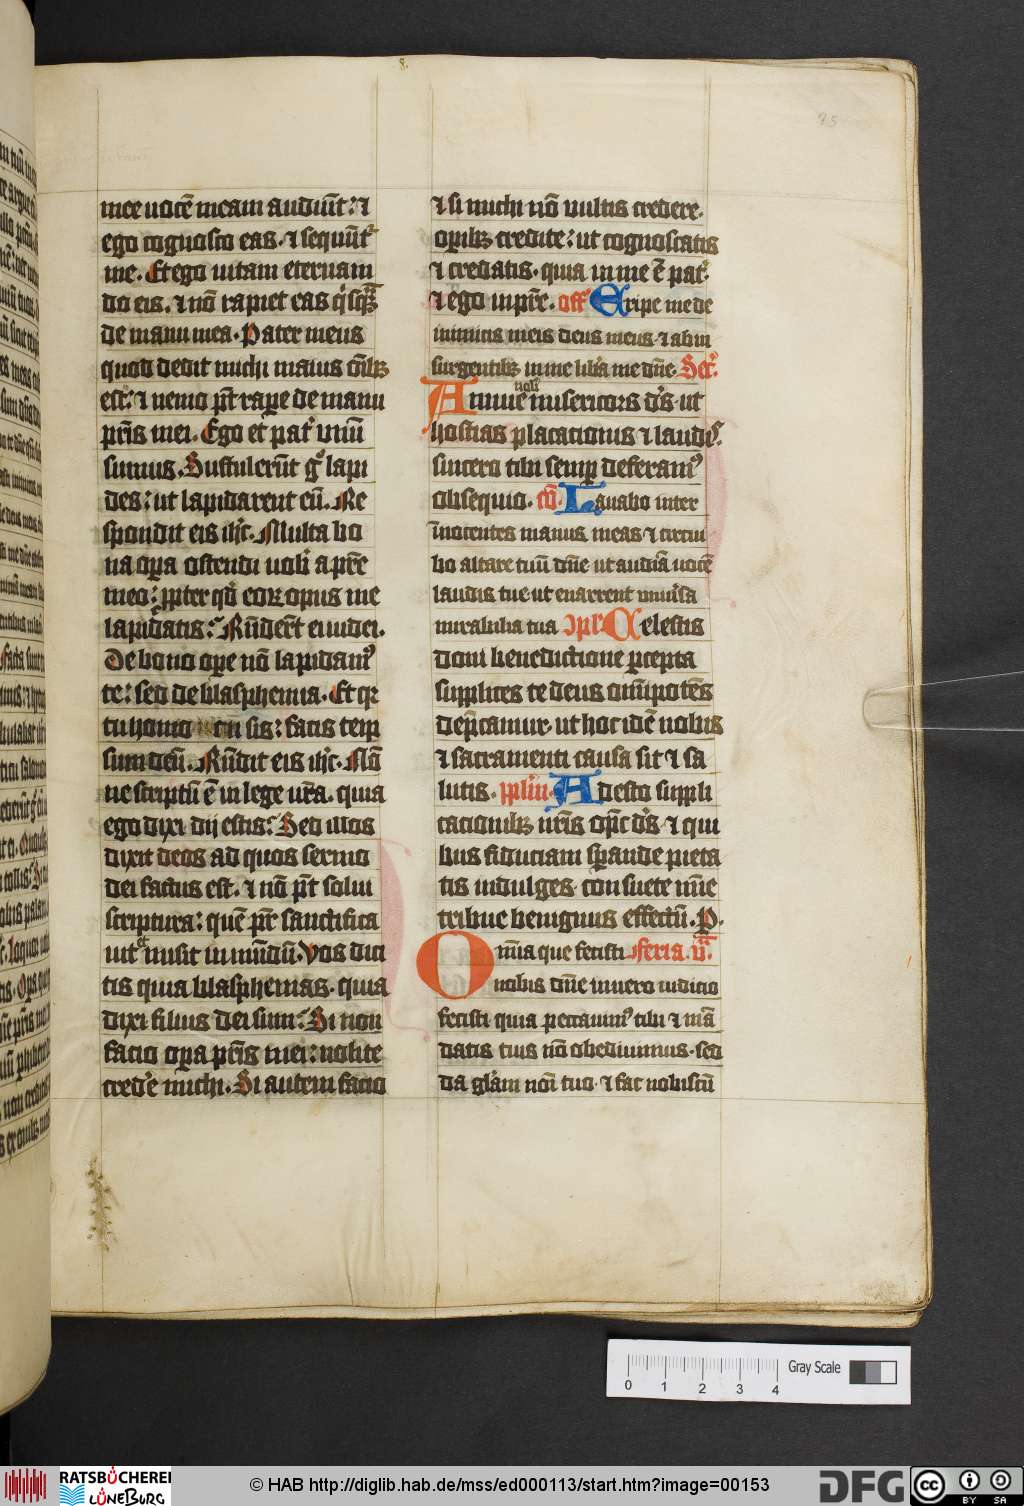 8.
75
mee uocē meam audiūt: ⁊
ego cognosco eas. ⁊ sequūt᷑
me. Et ego uitam eternam
do eis. ⁊ nō rapiet eas q̇sq̄
de manu mea. Pater meus
quod dedit michi maius oīb;
est. ⁊ nemo pt̄ rape de manu
pris mei. Ego et pat᷑ vnū
sumus. Sustulerūt g̊ lapi
des: ut lapidarent eū. Re
spondit eis ihc̄. Multa bo
na opa ostendi uob̄ a pr̄e
meo: ppter qd̄ eoꝝ opus me
lapidatis: Rn̄derūt ei iudei.
De bono ope nō lapidam᷒
te: sed de blasphemia. Et qr
tu homo cū sis: facis teip
sum deū. Rn̄dit eis ihc̄. Nō
ne scriptū ē in lege vr̄a. quia
ego dixi dij estis: Sed illos
dixit deos ad quos sermo
dei factus est. ⁊ nō pt̄ solui
scriptura: quē pr̄ sanctifica
uit et misit in mūdū. Vos dici
tis quia blasphemas. quia
dixi filius dei sum: Si non
facio opa pris mei: nolite
cred'e michi. Si autem facio
⁊ si michi nō vultis credere.
opib; credite: ut cognoscatis
⁊ credatis. quia in me ē pat᷑.
⁊ ego in pr̄e. off Eripe me de
inimicis meis deus meus. ⁊ ab in
surgentib; in me lib̄a me dn̄e. Secr̄.
nob̄
Annue misericors ds̄. ut
hostias placationis ⁊ laudis.
sincero tibi semp deferam᷒
obsequio. cō. Lauabo inter
inocentes manus meas ⁊ circu
bo altare tuū dn̄e ut audiā uocē
laudis tue ut enarrem vniu'sa
mirabilia tua Cpl Celestis
doni benedictione pcepta
supplices te deus om̄ipotēs
dep̄camur. ut hoc idē nobis
⁊ sacramenti causa sit ⁊ sa
lutis. pplm. Adesto suppli
cationib; nr̄is opc̄ ds̄. ⁊ qui
bus fiduciam sperande pieta
tis indulges. consuete mie
tribue benignus effectū. P.
Omīa que fecisti Feria .vi.
nobis dn̄e in uero iudicio
fecisti quia peccauim᷒ tibi ⁊ mā
datis tuis nō obediuimus. sed
da glām nōi tuo. ⁊ fac nobiscū
0 1 2 3 4
Gray Scale
RATSBÜCHEREI
LÜNEBURG
© HAB http://diglib.hab.de/mss/ed000113/start.htm?image=00153
DFG
cc
BY SA